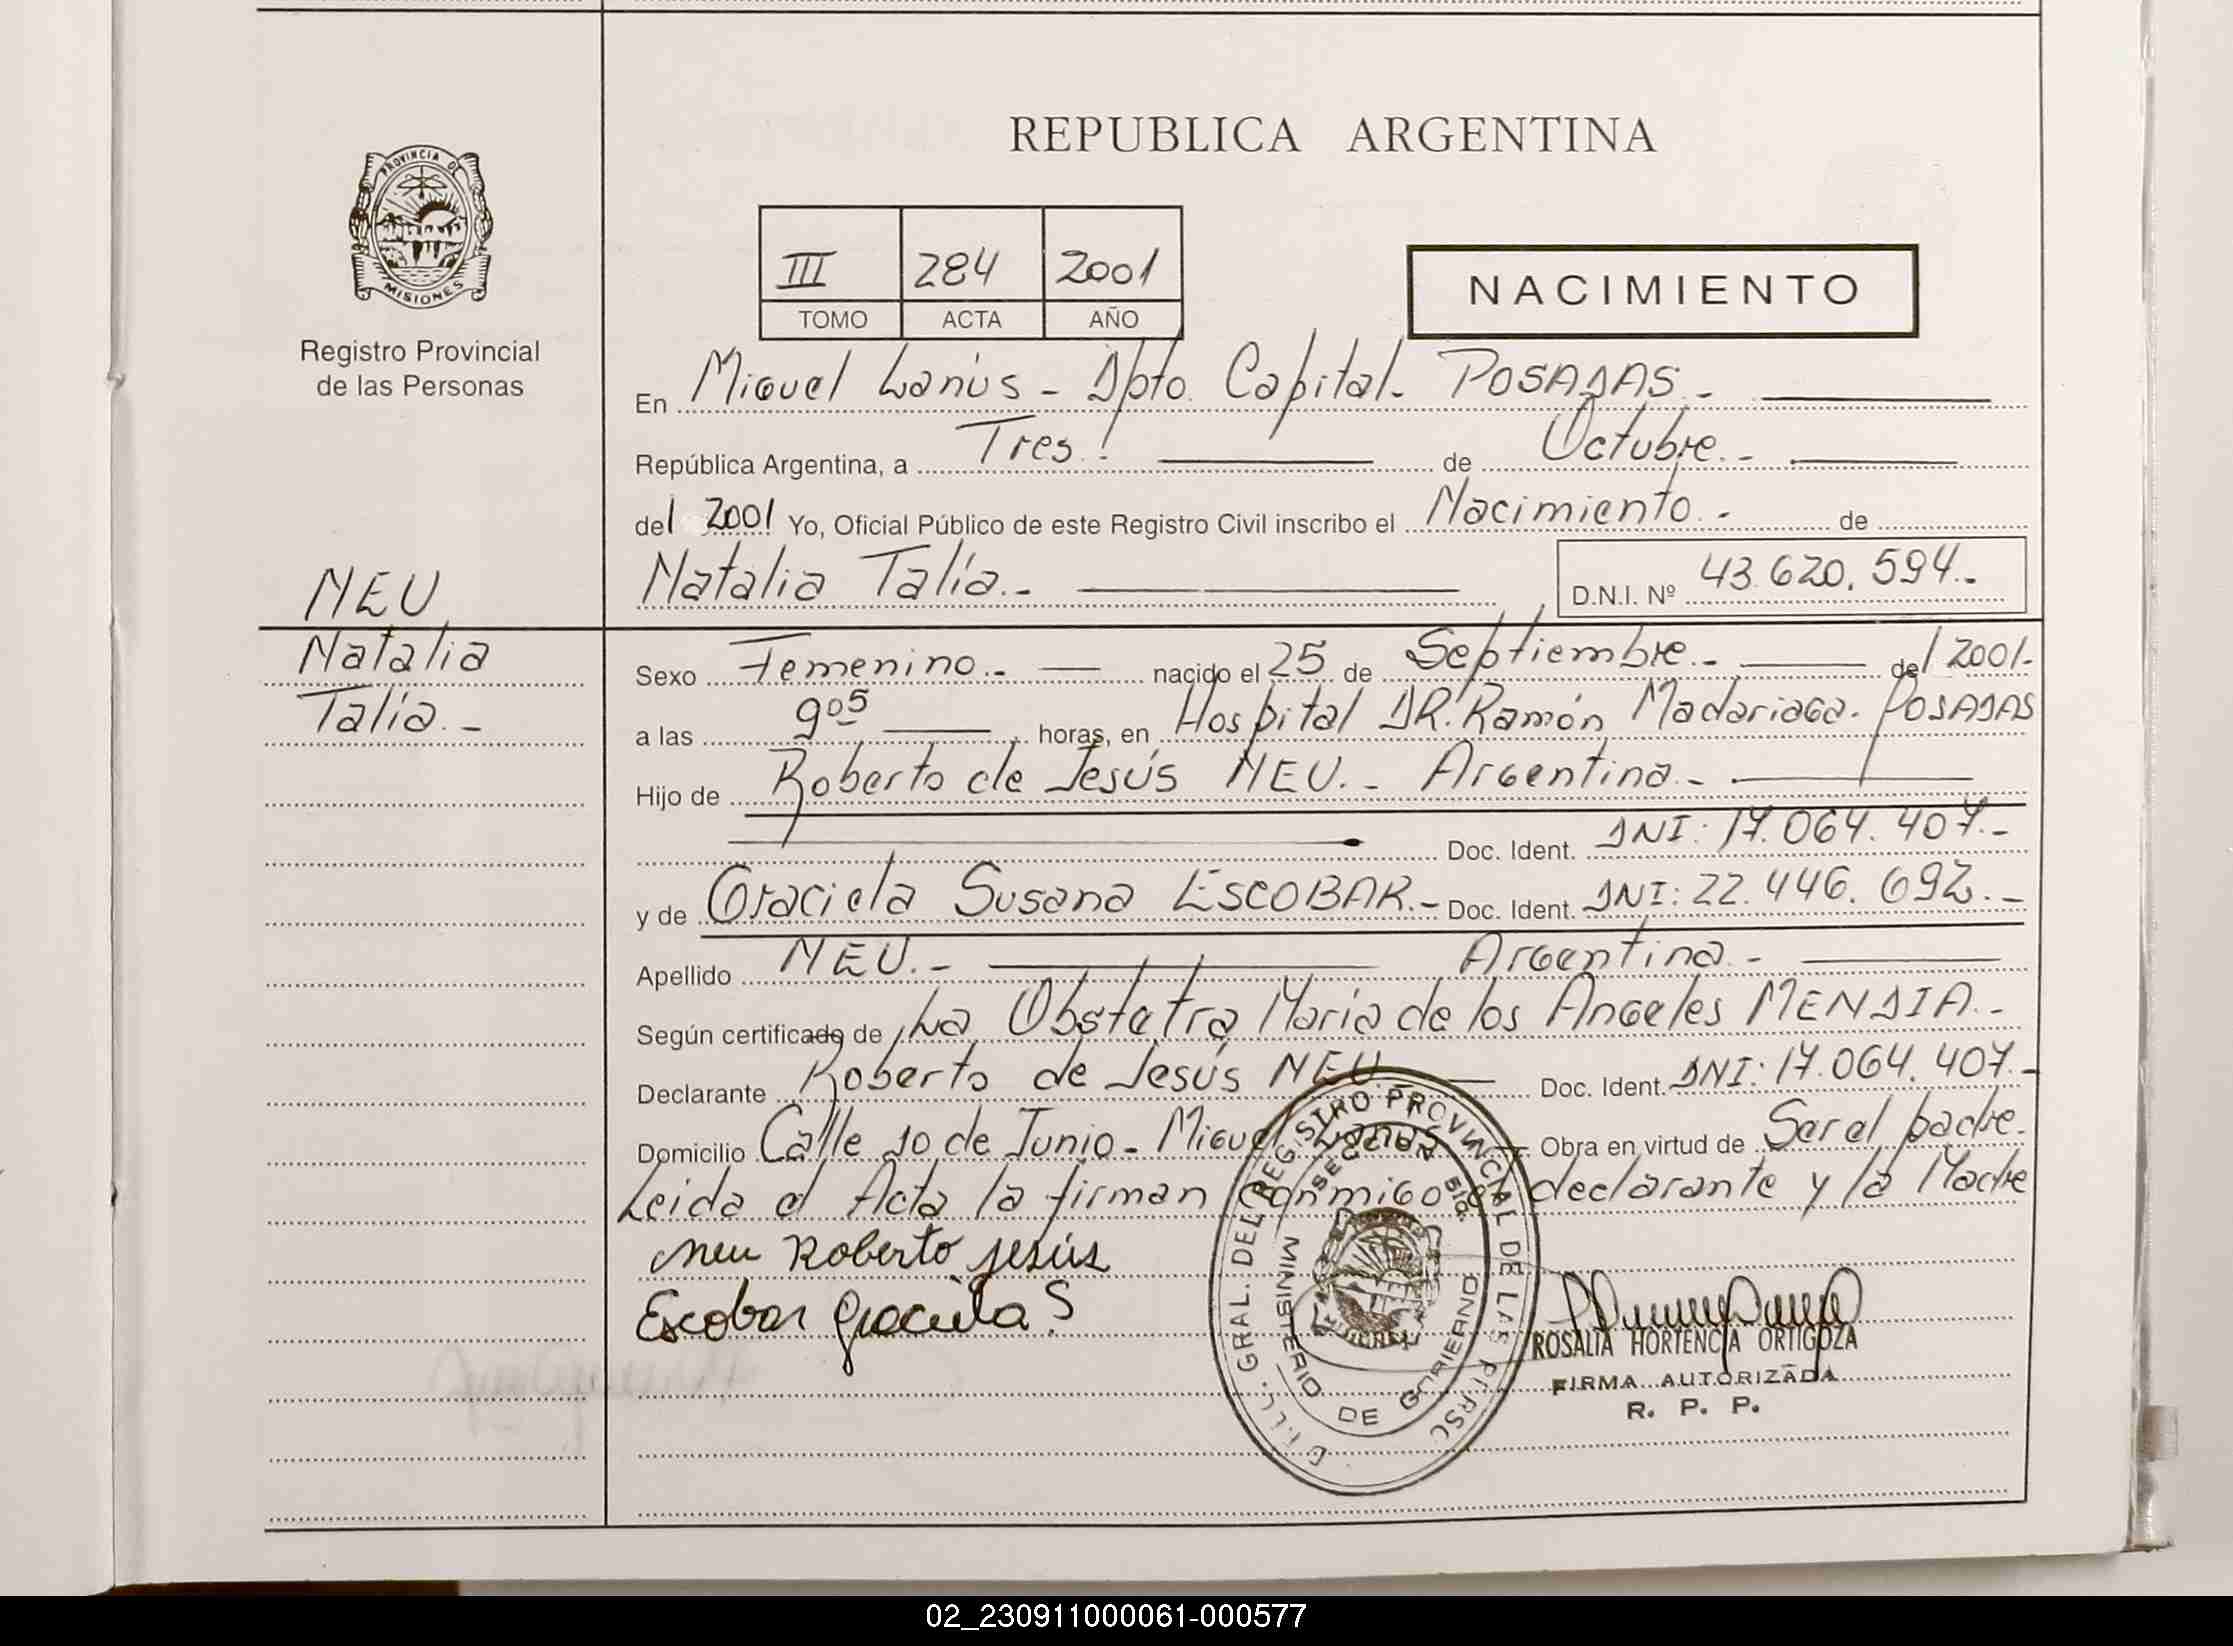 REPUBLICA ARGENTINA
PROVINCIA DE
MISIONES
Registro Provincial
de las Personas
III 284 2001
TOMO ACTA AÑO
NACIMIENTO
En Miguel Lanús - Dpto. Capital. POSADAS. -
República Argentina, a Tres. de Octubre. -
del 2001 Yo, Oficial Público de este Registro Civil inscribo el Nacimiento. - de
Natalia Talía. - D.N.I. Nº 43.620.594. -
NEU
Natalia
Talía. -
Sexo Femenino. - nacido el 25 de Septiembre. - del 2001.
a las 9 05 horas, en Hospital DR. Ramón Madariaga. POSADAS
Hijo de Roberto de Jesús NEU. - Argentina. -
Doc. Ident. DNI: 17.064.407. -
y de Graciela Susana ESCOBAR. - Doc. Ident. DNI: 22.446.692. -
Apellido NEU. - Argentina. -
Según certificado de La Obstetra María de los Angeles MENDIA. -
Declarante Roberto de Jesús NEU Doc. Ident. DNI: 17.064.407. -
Domicilio Calle 10 de Junio - Miguel Lanús Obra en virtud de Ser el padre.
Leida el Acta la firman conmigo el declarante y la Madre
Neu Roberto Jesús
Escobar Graciela S
GRAL. DEL REGISTRO PROVINCIAL DE LAS PERSO
MINISTERIO DE GOBIERNO
ROSALIA HORTENCIA ORTIGOZA
FIRMA AUTORIZADA
R. P. P.
02_230911000061-000577